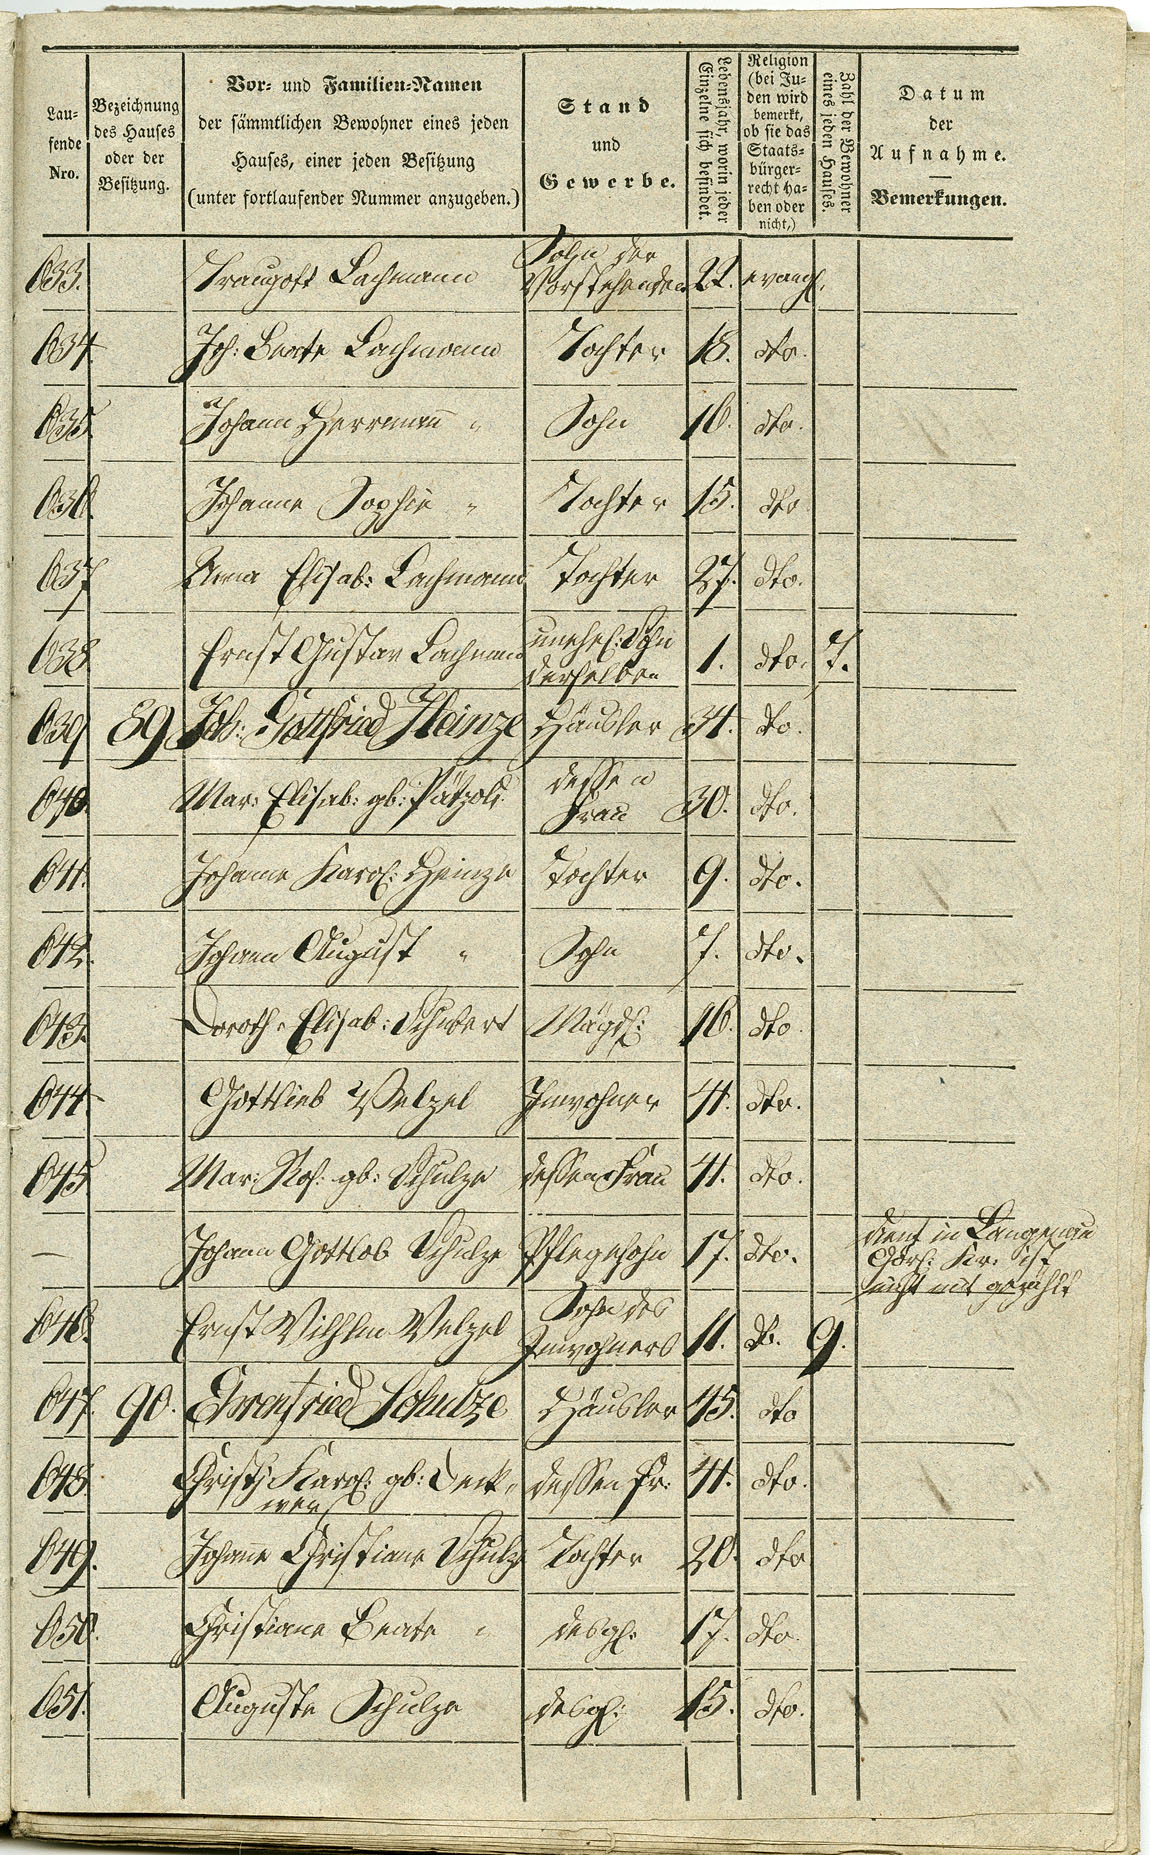 Lau-
fende
Nro.
Bezeichnung
des Hauses
oder der
Besitzung.
Vor- und Familien-Namen
der sämmtlichen Bewohner eines jeden
Hauses, einer jeden Besitzung
(unter fortlaufender Nummer anzugeben.)
Stand
und
Gewerbe.
Lebensjahr, worin jeder
Einzelne sich befindet.
Religion
(bei Ju-
den wird
bemerkt,
ob sie das
Staats-
bürger-
recht ha-
ben oder
nicht,)
Zahl der Bewohner
eines jeden Hauses.
Datum
der
Aufnahme.
Bemerkungen.
Sohn der
633. Traugott Lachmann Vorstehenden 22. evangl.
634 Joh: Beate Lachmann Tochter 18. dto.
635. Johann Herrmann " Sohn 16. dto.
636. Johanne Sophie " Tochter 15. dto
637 Anna Elisab: Lachmann Tochter 27. dto.
638 Ernst Gustav Lachmann unehel: Sohn
derselben 1. dto. 7.
639 89 Joh: Gottfried Heinze Häusler 34. dto.
640. Mar: Elisab: gb: Pätzold dessen
Frau 30. dto.
641. Johanne Karol: Heinze Tochter 9. dto.
642. Johann August " Sohn 7. dto.
643. Doroth. Elisab: Schubert Mägdl: 16. dto
644. Gottlieb Welzel Inwohner 41. dto.
645 Mar: Ros: gb: Schulze dessen Frau 41. dto.
— Johann Gottlob Schulze Pflegesohn 17. dto. dient in Langenau
Görl: Kr: ist
nicht mit gezählt
646. Ernst Wilhlm Welzel Sohn des
Inwohners 11. do. 9.
647. 90. Ehrenfried Schulze Häusler 45. dto
648. Christ: Karol: gb: Deck-
wer dessen Fr: 41. dto.
649. Johanne Christiane Schulze Tochter 20. dto
650. Christiane Beate " desgl. 17. dto.
651. Auguste Schulze desgl: 15. dto.